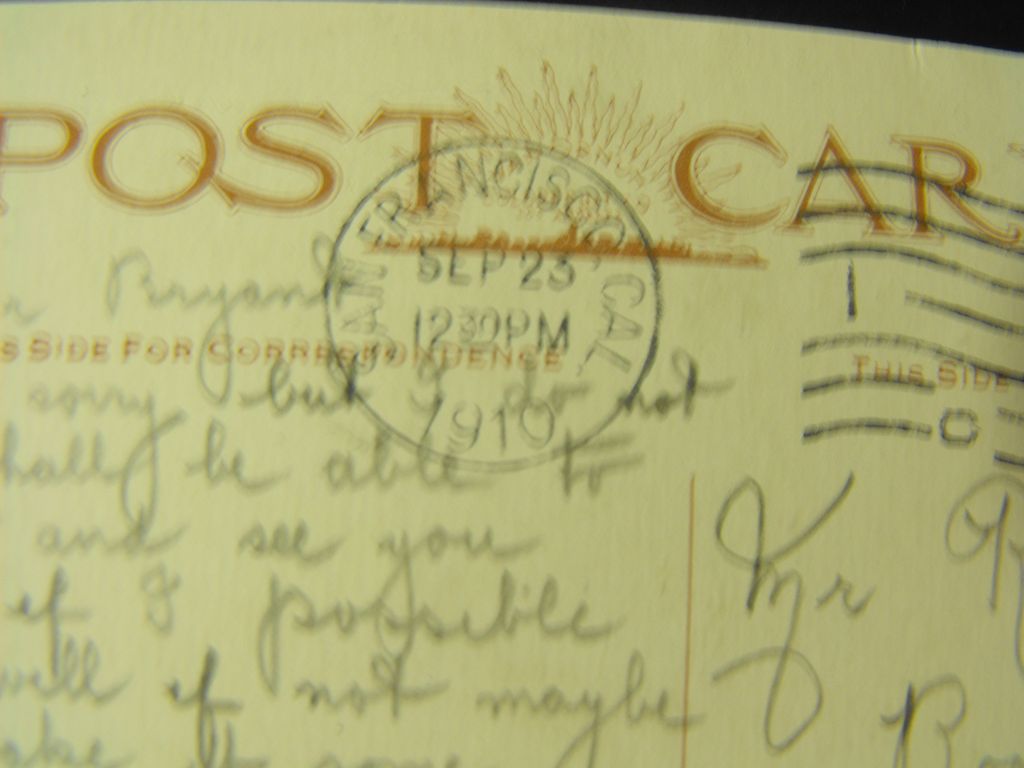 POST CAR
SAN FRANCISCO, CAL.
SEP 23
1230PM
1910
1
C
Bryant
S SIDE FOR CORRESPONDENCE
THIS SIDE
sorry but I do not
hall be able to
and see you
if I possible
will if not maybe
Mr